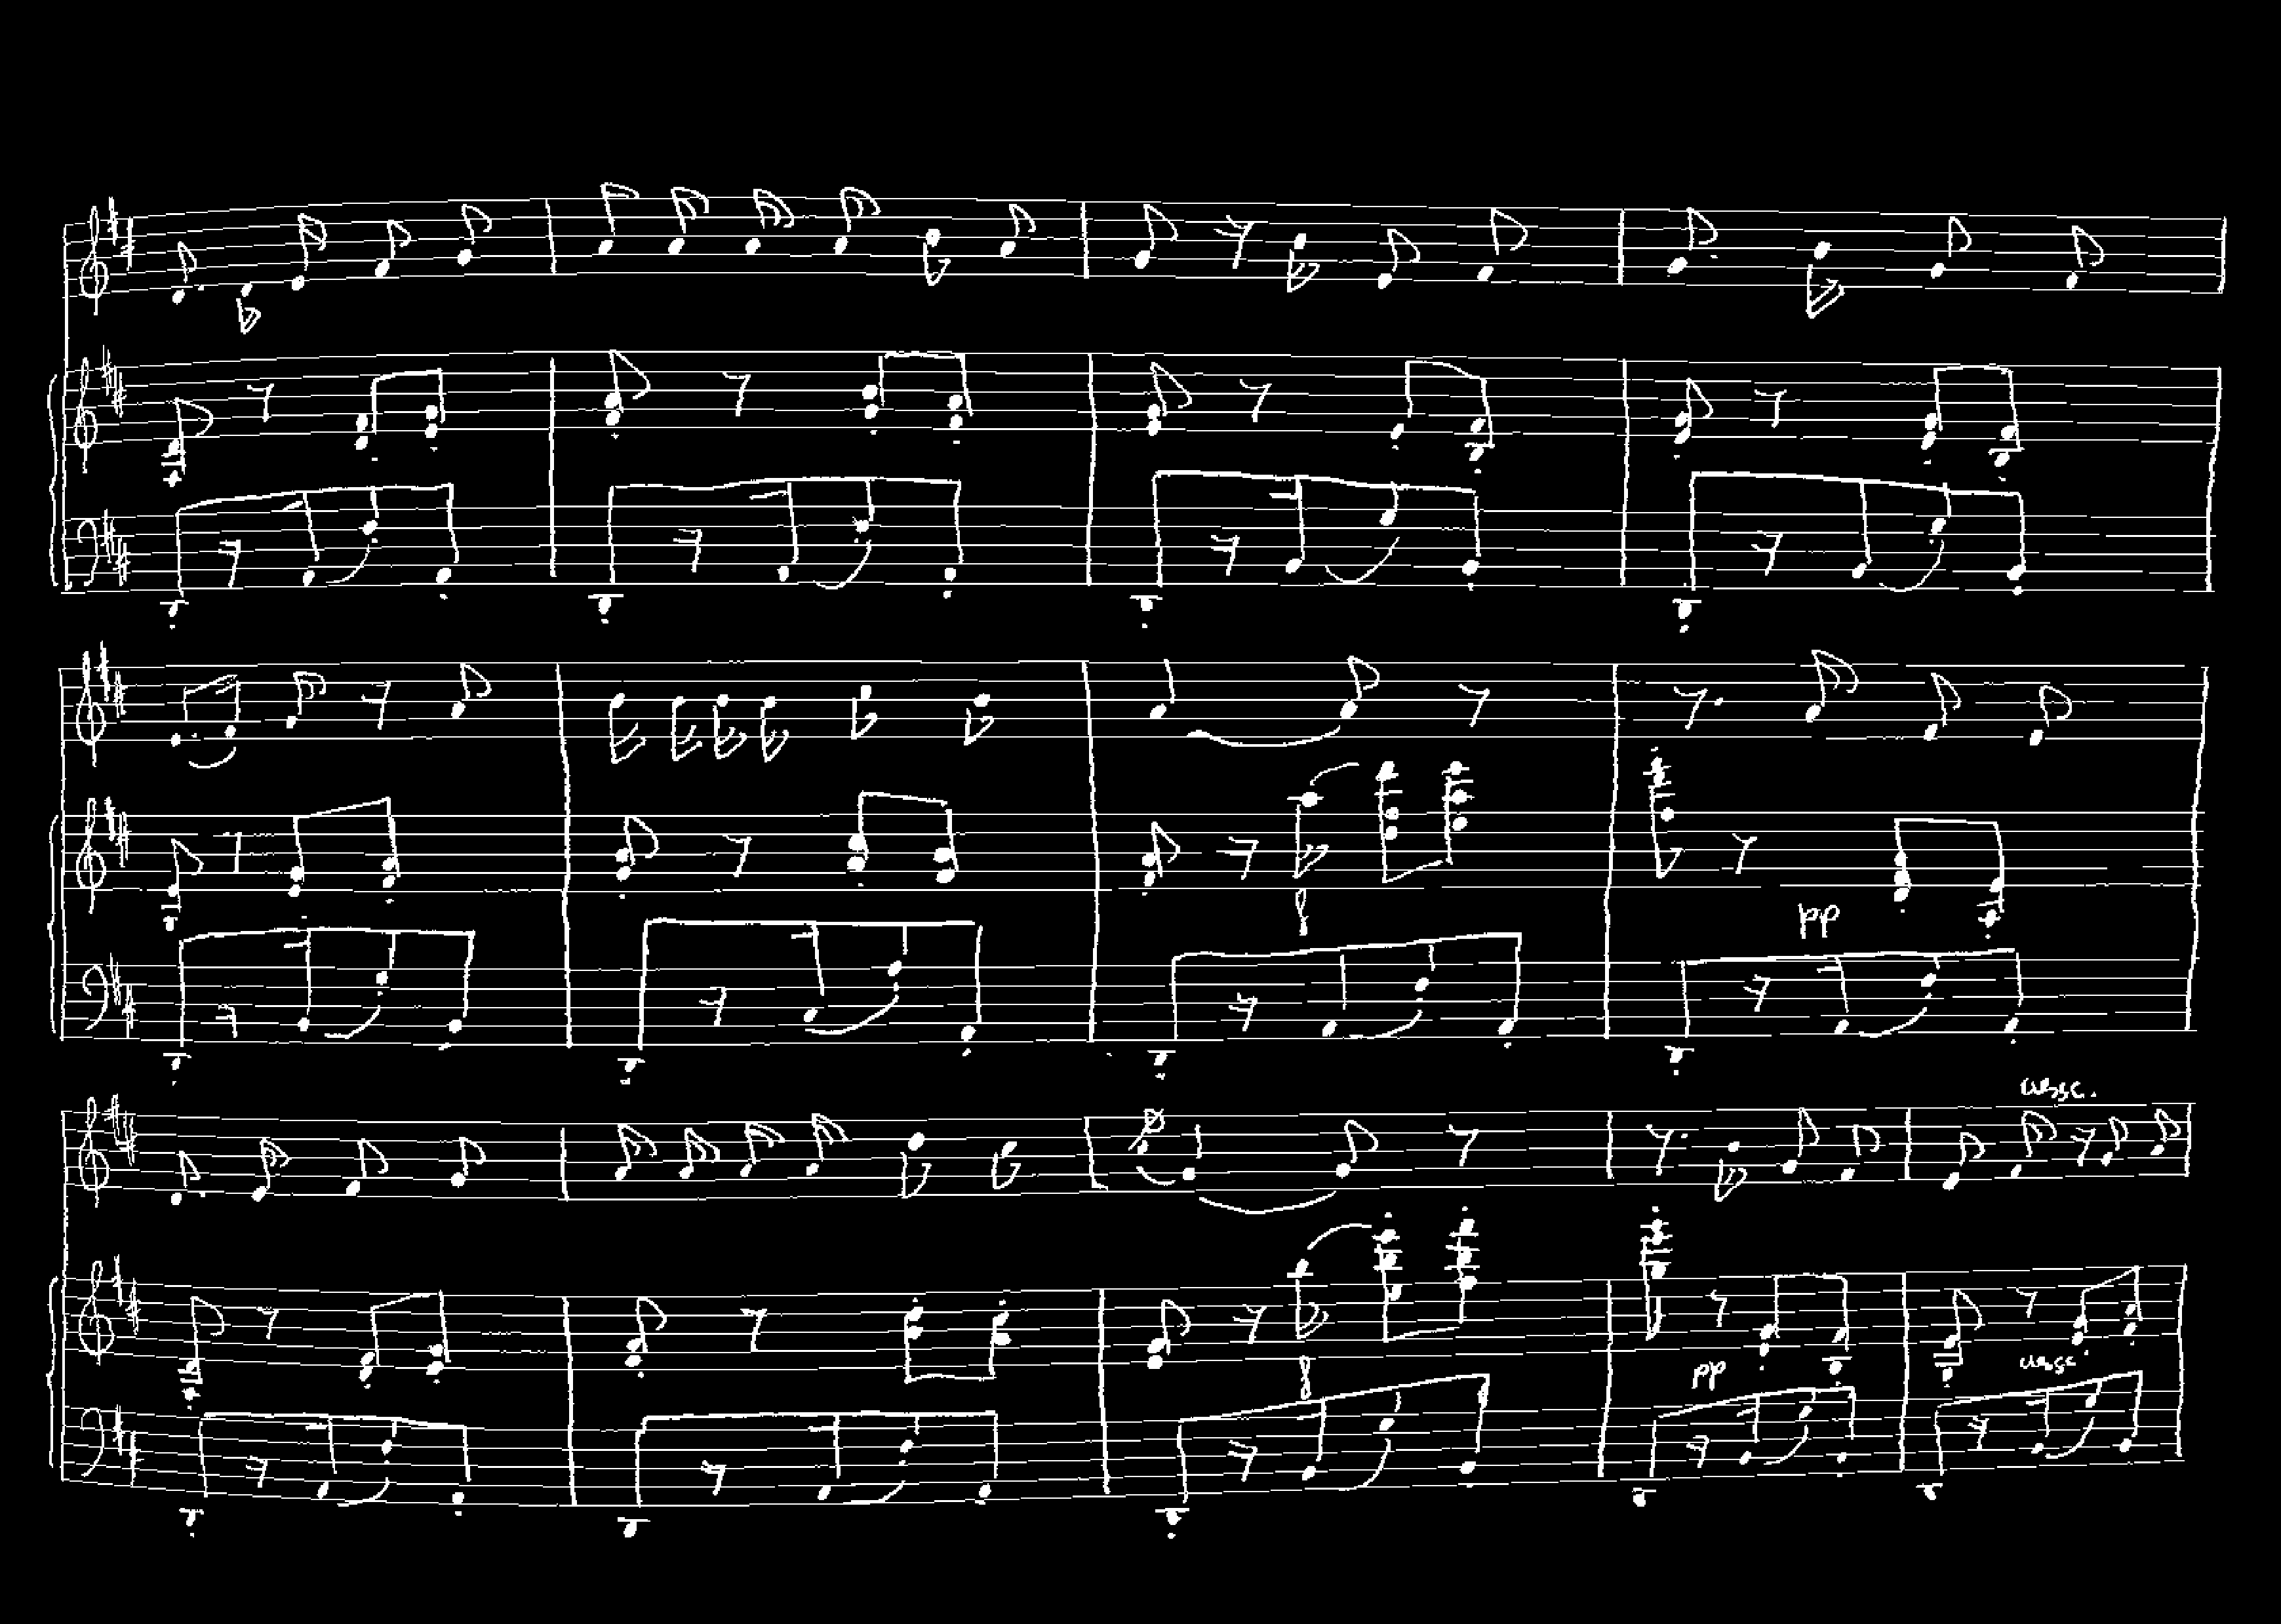 pp
cresc.
pp
cresc